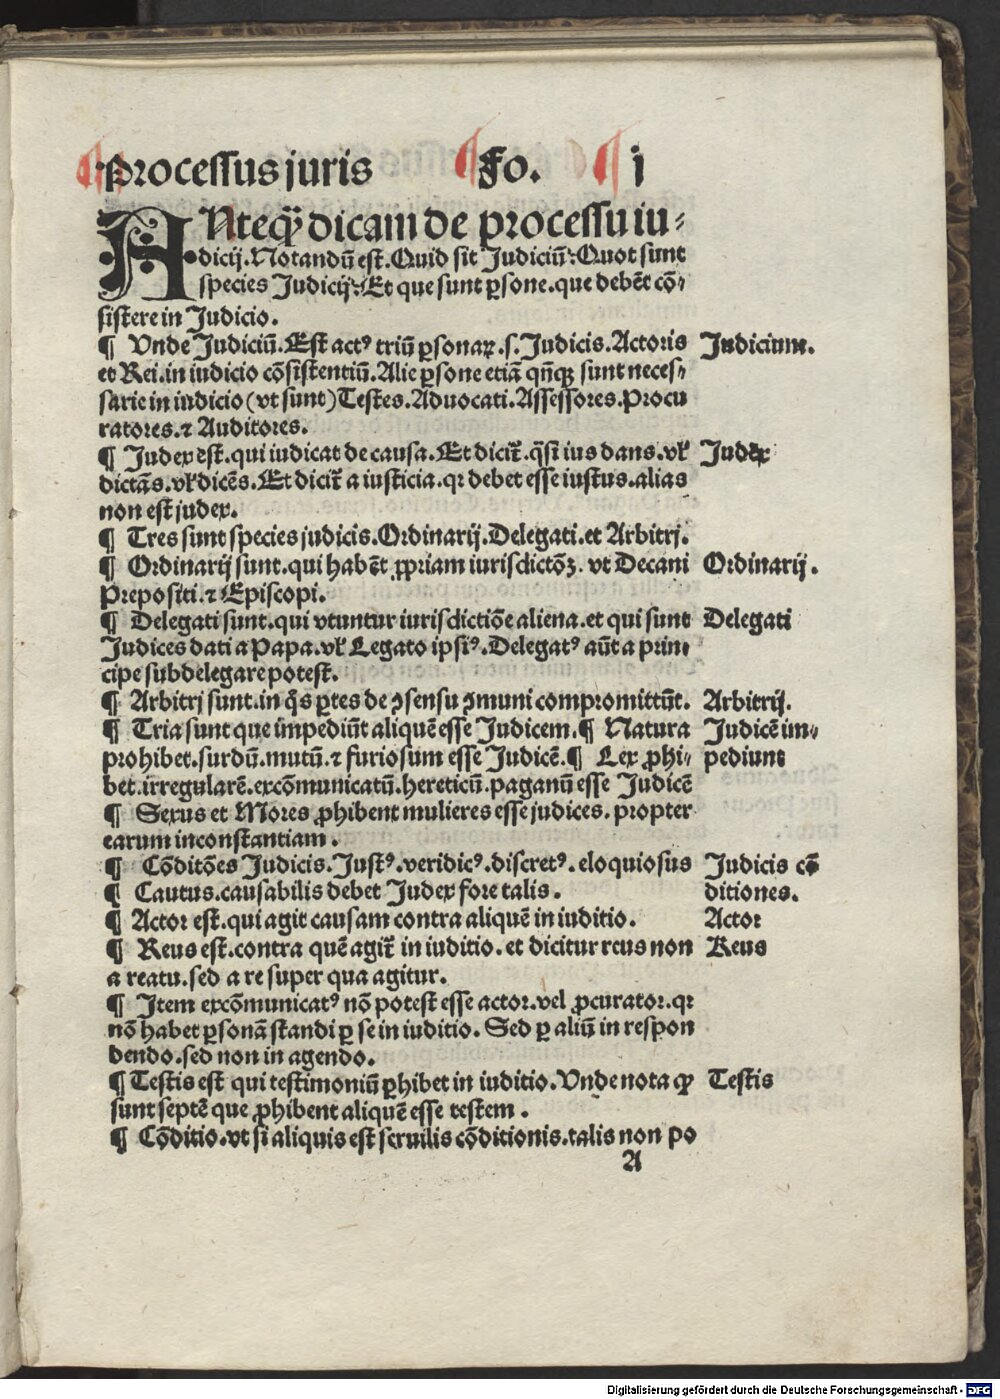 Processus juris Fo. j
ANteꝙ̃ dicam de processu iu⸗
dicij. Notandū est. Quid sit Judiciū: Quot sunt
species Judicij: Et que sunt ꝑsone. que debēt cō⸗
sistere in Judicio.
¶ Vnde Judiciū. Est actꝰ triū ꝑsonaꝝ. s. Judicis. Actoris Judicium.
et Rei. in iudicio cōsistentiū. Alie ꝑsone etiā qn̄qꝫ sunt neces⸗
sarie in iudicio (vt sunt) Testes. Aduocati. Assessores. Procu
ratores. ⁊ Auditores.
¶ Judex est. qui iudicat de causa. Et dicit̄. q̄si ius dans. vl̓ Judex
dictās. vl̓ dicēs. Et dicit̄ a iusticia. qꝛ debet esse iustus. alias
non est judex.
¶ Tres sunt species judicis. Ordinarij. Delegati. et Arbitrj.
¶ Ordinarij sunt. qui habēt ꝓpriam iurisdictōꝫ. vt Decani Ordinarij.
Prepositi. ⁊ Episcopi.
¶ Delegati sunt. qui vtuntur iurisdictiōe aliena. et qui sunt Delegati
Judices dati a Papa. vl̓ Legato ipsiꝰ. Delegatꝰ aūt a prin
cipe subdelegare potest.
¶ Arbitrj sunt. in q̄s ꝑtes de ꝯsensu ꝯmuni compromittūt. Arbitrij.
¶ Tria sunt que impediūt aliquē esse Judicem. ¶ Natura Judicē im⸗
prohibet. surdū. mutū. ⁊ furiosum esse Judicē. ¶ Lex ꝓhi⸗ pediunt
bet. irregularē. excōmunicatū. hereticū. paganū esse Judicē
¶ Sexus et Mores ꝓhibent mulieres esse judices. propter
earum inconstantiam.
¶ Cōditōes Judicis. Justꝰ. veridicꝰ. discretꝰ. eloquiosus Judicis cō
¶ Cautus. causabilis debet Judex fore talis. ditiones.
¶ Actor est. qui agit causam contra aliquē in iuditio. Actor
¶ Reus est. contra quē agit̄ in iuditio. et dicitur reus non Reus
a reatu. sed a re super qua agitur.
¶ Item excōmunicatꝰ nō potest esse actor. vel ꝓcurator. qꝛ
nō habet ꝑsonā standi ꝑ se in iuditio. Sed ꝑ aliū in respon
dendo. sed non in agendo.
¶ Testis est qui testimoniū ꝑhibet in iuditio. Vnde nota ꝙ Testis
sunt septē que ꝓhibent aliquē esse testem.
¶ Cōditio. vt si aliquis est seruilis cōditionis. talis non po
A
Digitalisierung gefördert durch die Deutsche Forschungsgemeinschaft - DFG